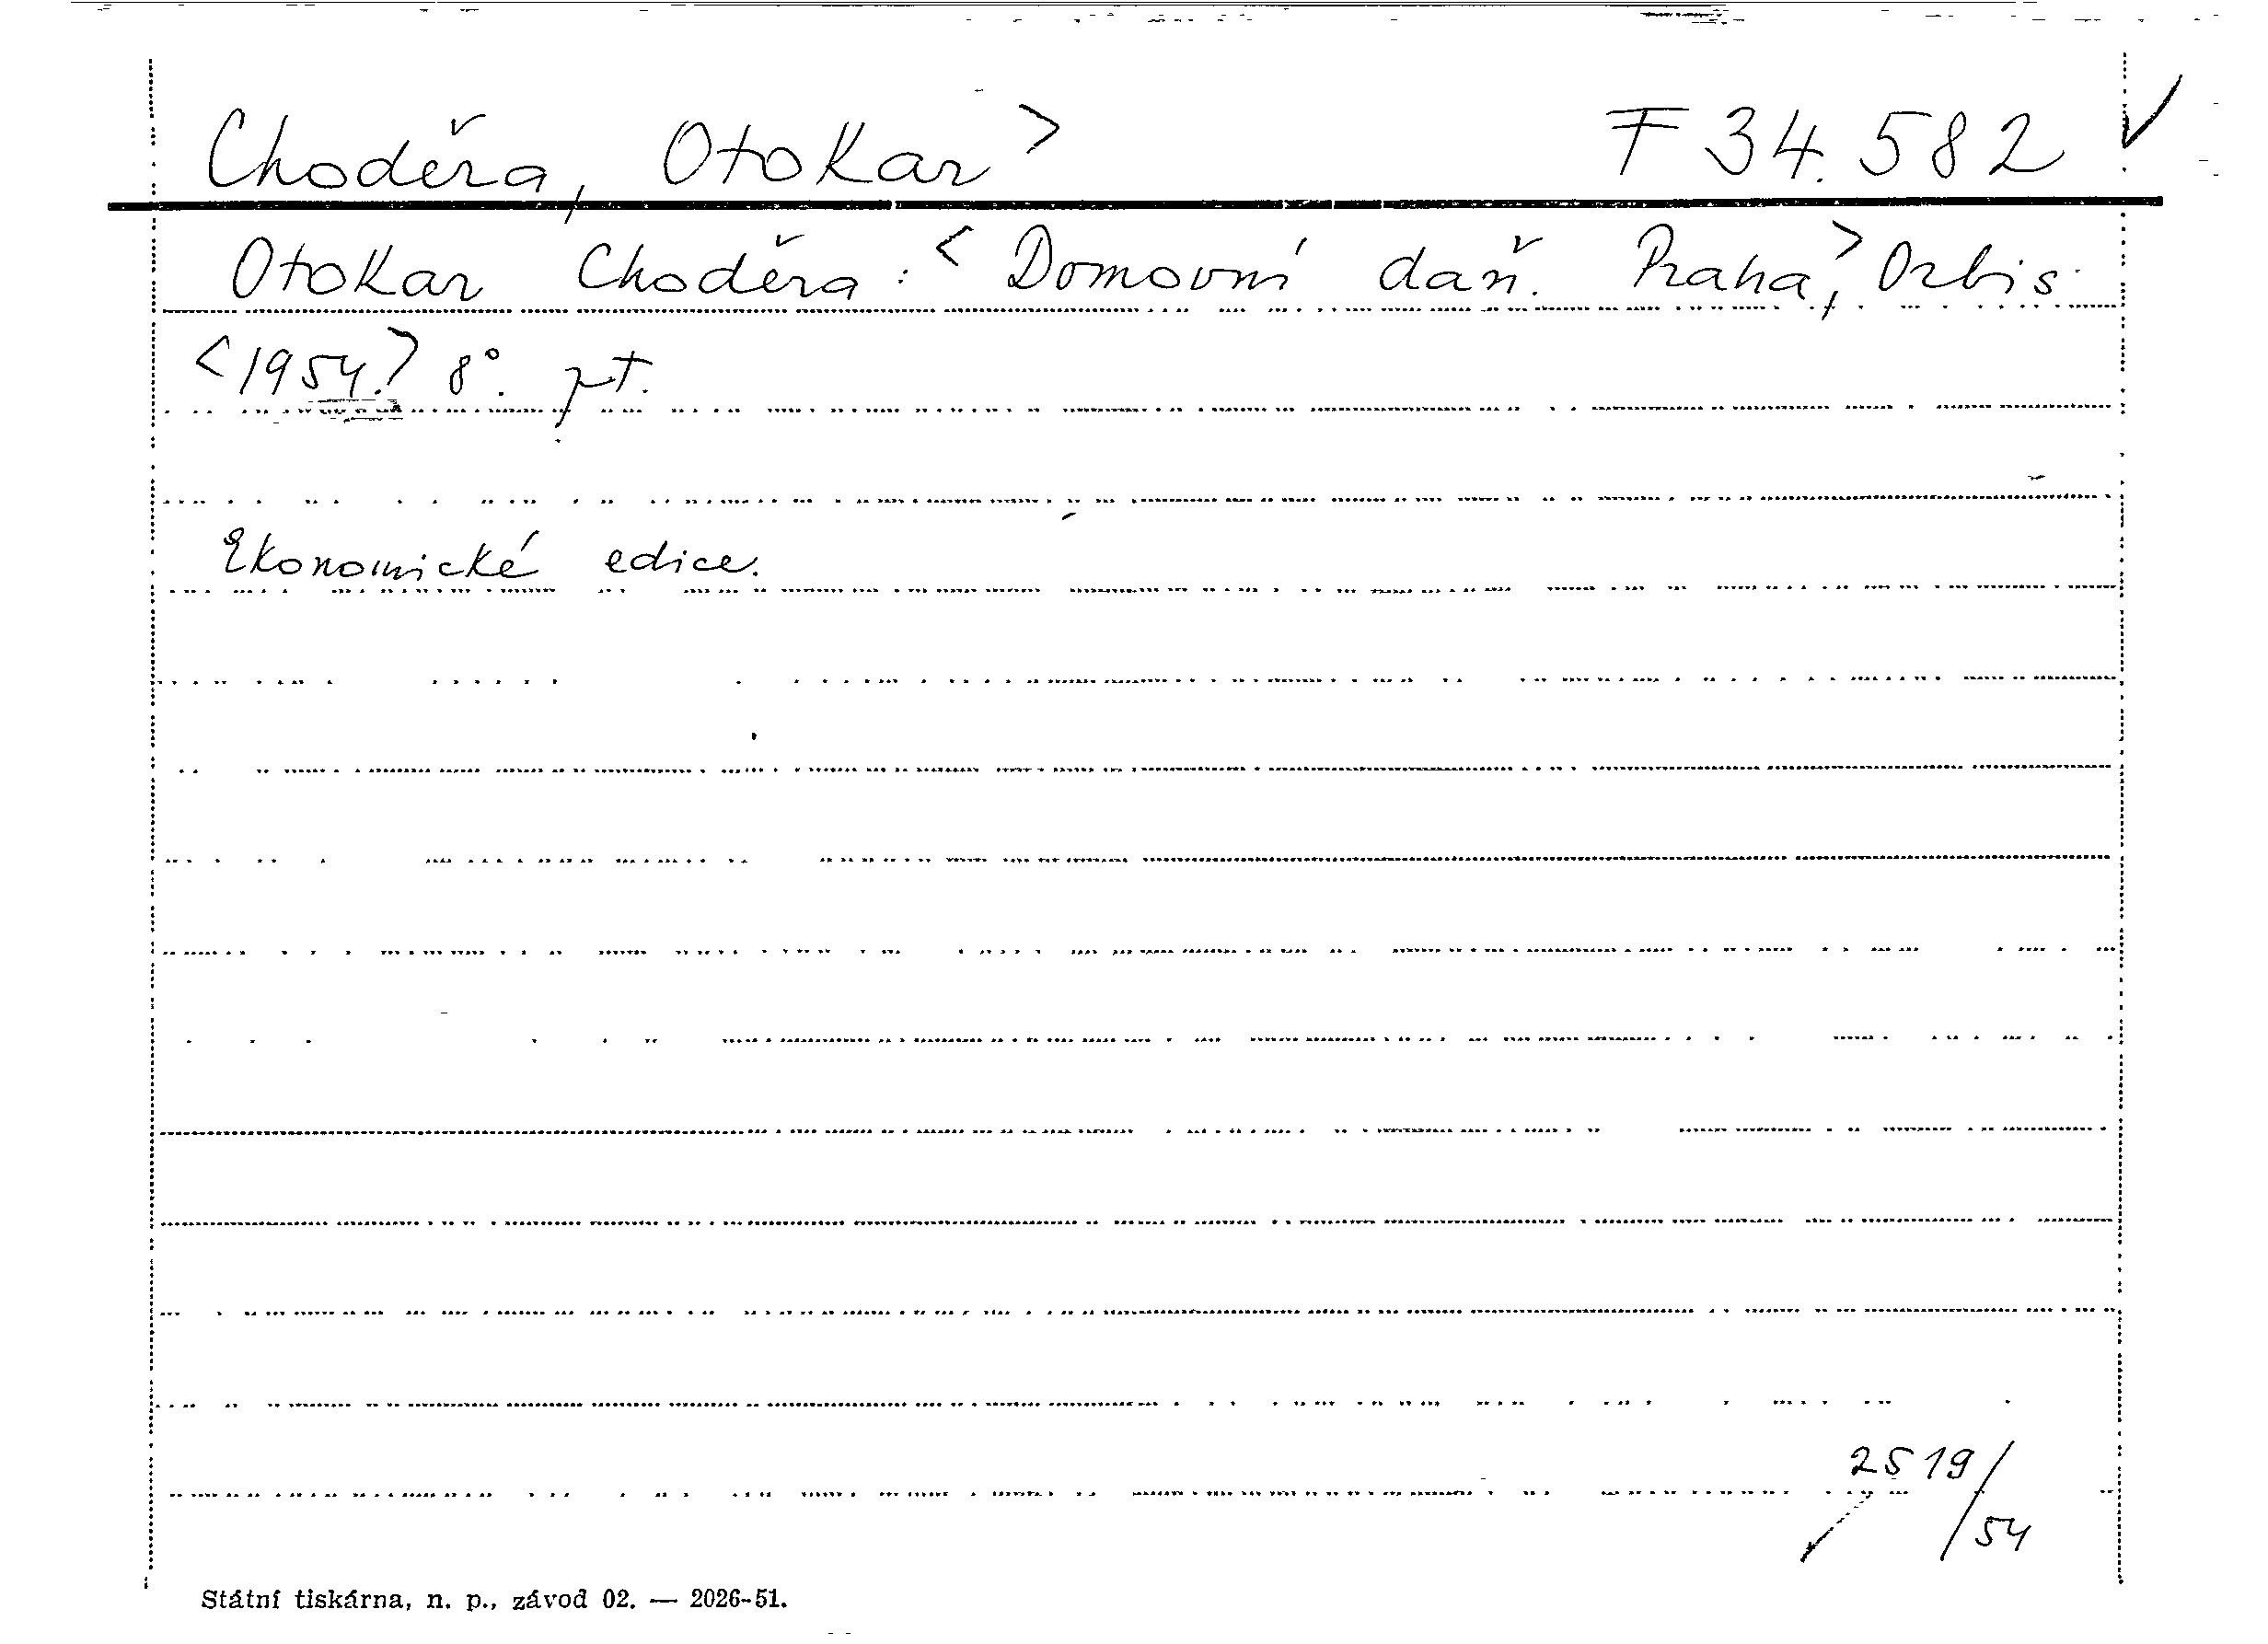 Choděra, Otokar> F 34.582 ✓
Otokar Choděra: <Domovní daň. Praha,> Orbis
<1954.> 8°. pt.
Ekonomické edice.
2519/54
Státní tiskárna, n. p., závod 02. — 2026-51.